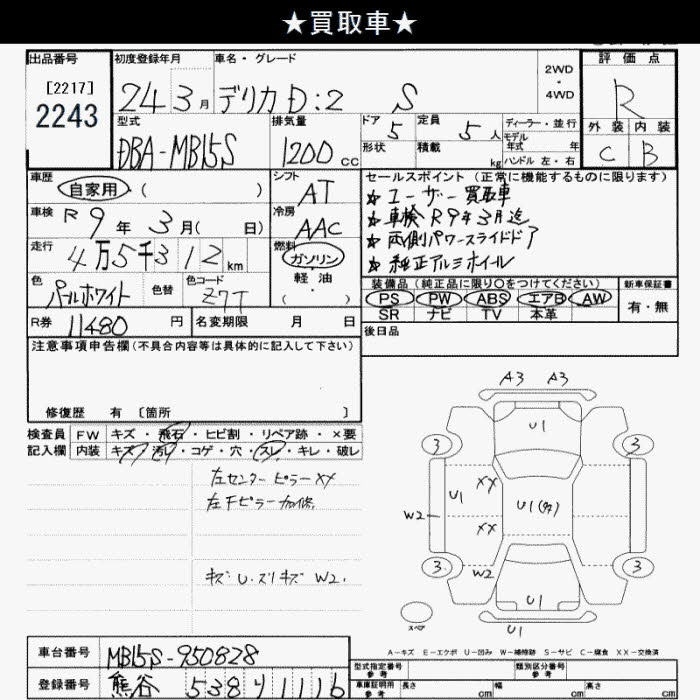 ★買取車★
出品番号
[2217]
2243
初度登録年月
24 3月
車名・グレード
デリカD:2 S
2WD
・
4WD
評価点
R
外装 内装
C B
型式
DBA-MB15S
排気量
1200 cc
ドア
5
定員
5 人
形状
積載
kg
ディーラー・並行
モデル
年式 年
ハンドル 左・右
車歴
自家用 ( )
シフト
AT
セールスポイント(正常に機能するものに限ります)
★ユーザー買取車
★車検R9年3月迄
★両側パワースライドドア
★純正アルミホイール
車検
R9年 3月( 日)
冷房
AAC
走行
4万5千312km
燃料
ガソリン
軽油
( )
色
パールホワイト
色替
色コード
Z7T
装備品(純正品に限り○をつけてください)
PS PW ABS エアB AW
SR ナビ TV 本革
新車保証書
有・無
R券
11480 円
名変期限 月 日
後日品
注意事項申告欄(不具合内容等は具体的に記入して下さい)
修復歴 有 〔箇所 〕
検査員
記入欄
FW キズ・飛石・ヒビ割・リペア跡・×要
内装 キズ・汚れ・コゲ・穴・スレ・キレ・破レ
左センターピラーXX
左下ピラー加修
キズ U.スリキズ W2.
A3 A3
U1
3 3
XX
U1
U1
W2
XX
3 3
W2
U1
スペア
U1
A-キズ E-エクボ U-凹み W-補修跡 S-サビ C-腐食 XX-交換済
車台番号
MB15S-950828
登録番号
熊谷 538 り 1116
型式指定番号
参考
類別区分番号
参考
車庫証明用
参考
長さ cm
幅 cm
高さ cm